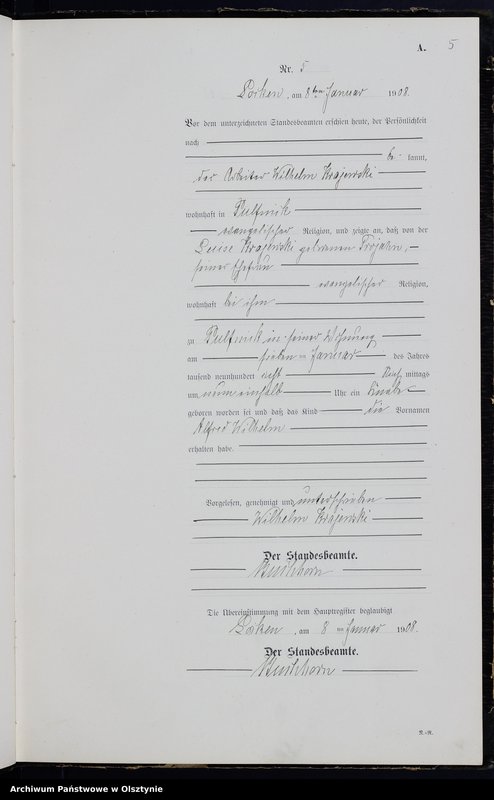 A.
5
Nr. 5
Locken, am 8ten Januar 1908.
Vor dem unterzeichneten Standesbeamten erschien heute, der Persönlichkeit
nach
be kannt,
der Arbeiter Wilhelm Krajewski
wohnhaft in Pulfnick
evangelischer Religion, und zeigte an, daß von der
Luise Krajewski geborenen Trojahn,
seiner Ehefrau
evangelischer Religion,
wohnhaft bei ihm
zu Pulfnick in seiner Wohnung
am sieben ten Januar des Jahres
tausend neunhundert acht Nach mittags
um neun einhalb Uhr ein Knabe
geboren worden sei und daß das Kind die Vornamen
Alfred Wilhelm
erhalten habe.
Vorgelesen, genehmigt und unterschrieben
Wilhelm Krajewski
Der Standesbeamte.
Die Übereinstimmung mit dem Hauptregister beglaubigt
Locken, am 8 ten Januar 1908.
Der Standesbeamte.
R.-R.
Archiwum Państwowe w Olsztynie